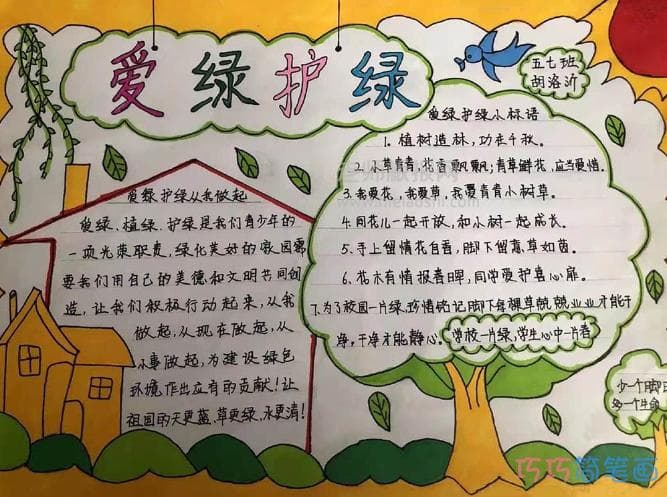 爱绿护绿
五七班
胡洛沂
爱绿护绿小标语
1. 植树造林，功在千秋。
2. 小草青青，花香飘飘，青草鲜花，应当爱惜。
3. 我爱花，我爱草，我爱青青小树草。
4. 同花儿一起开放，和小树一起成长。
5. 手上留情花自香，脚下留意草如茵。
6. 花木有情报春晖，同学爱护喜心扉。
7. 为了校园一片绿，珍惜铭记脚下每棵草
才能干
净，干净才能静心。
学校一片绿，学生心中一片春
爱绿护绿从我做起
爱绿、植绿、护绿是我们青少年的
一项光荣职责，绿化美好的家园需
要我们用自己的美德和文明共同创
造，让我们积极行动起来，从我
做起，从现在做起，从
小事做起，为建设绿色
环境作出应有的贡献！让
祖国的天更蓝，草更绿，水更清！
少一个脚印
多一个生命
巧巧简笔画